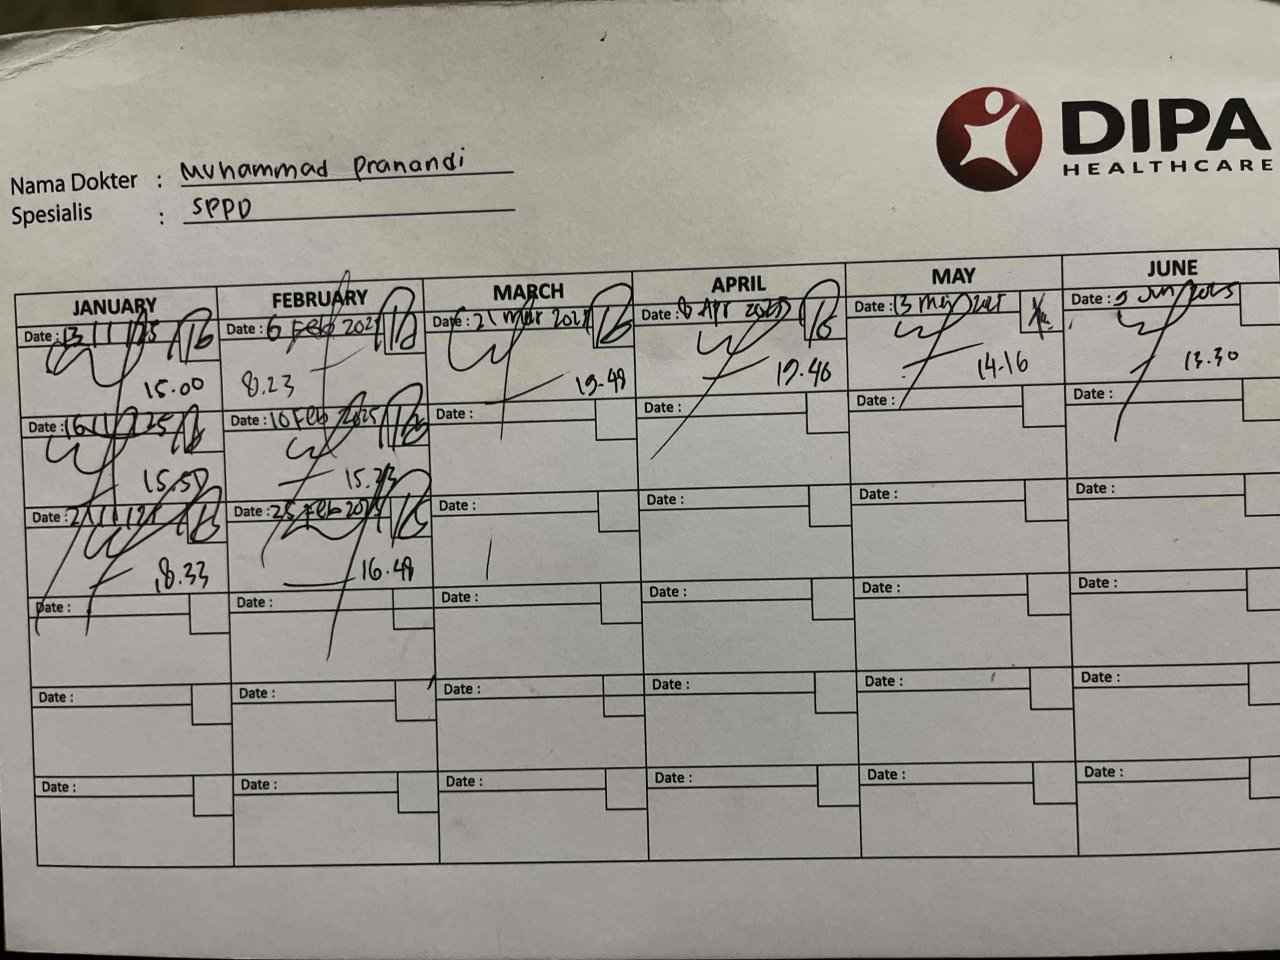 DIPA
HEALTHCARE
Nama Dokter : Muhammad Pranandi
Spesialis : SPPD
JANUARY FEBRUARY MARCH APRIL MAY JUNE
Date : 13/1/25 Date : 6 Feb 2025 Date : 21 Mar 2025 Date : 8 Apr 2025 Date : 13 Mei 2025 Date : 5 Jun 2025
15.00 8.23 19.49 19.46 14.16 13.30
Date : 16/1/25 Date : 10 Feb 2025 Date : Date : Date : Date :
15.50 15.23
Date : 21/1/25 Date : 25 Feb 2025 Date : Date : Date : Date :
18.33 16.48
Date : Date : Date : Date : Date : Date :
Date : Date : Date : Date : Date : Date :
Date : Date : Date : Date : Date : Date :